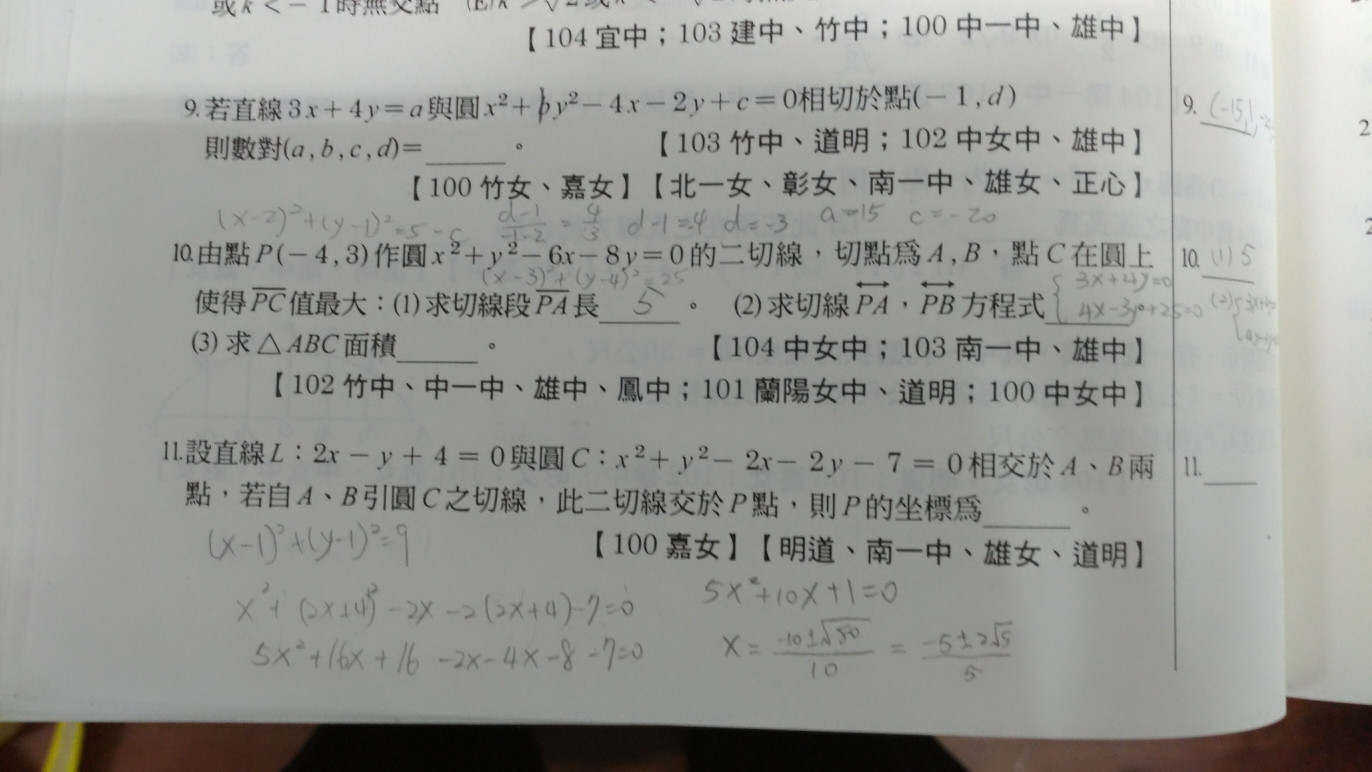 或k<-1時無交點
【104宜中;103建中、竹中;100中一中、雄中】
9.若直線3x+4y=a與圓x²+by²-4x-2y+c=0相切於點(-1,d)
9.
則數對(a,b,c,d)=______。【103竹中、道明;102中女中、雄中】
【100竹女、嘉女】【北一女、彰女、南一中、雄女、正心】
(x-2)²+(y-1)²=5-c d-1/-1-2=4/3 d-1=-4 d=-3 a=-15 c=-20
10.由點P(-4,3)作圓x²+y²-6x-8y=0的二切線,切點爲A,B,點C在圓上
10. (1) 5
(x-3)²+(y-4)²=25
使得PC值最大:(1)求切線段PA長 5 。 (2)求切線PA,PB方程式
3x+4y=0
4x-3y+25=0
(2)
(3)求△ABC面積______。【104中女中;103南一中、雄中】
【102竹中、中一中、雄中、鳳中;101蘭陽女中、道明;100中女中】
11.設直線L:2x-y+4=0與圓C:x²+y²-2x-2y-7=0相交於A、B兩
11.
點,若自A、B引圓C之切線,此二切線交於P點,則P的坐標爲______。
(x-1)²+(y-1)²=9
【100嘉女】【明道、南一中、雄女、道明】
x²+(2x+4)²-2x-2(2x+4)-7=0
5x²+10x+1=0
5x²+16x+16-2x-4x-8-7=0
x=-10±√80/10=-5±2√5/5